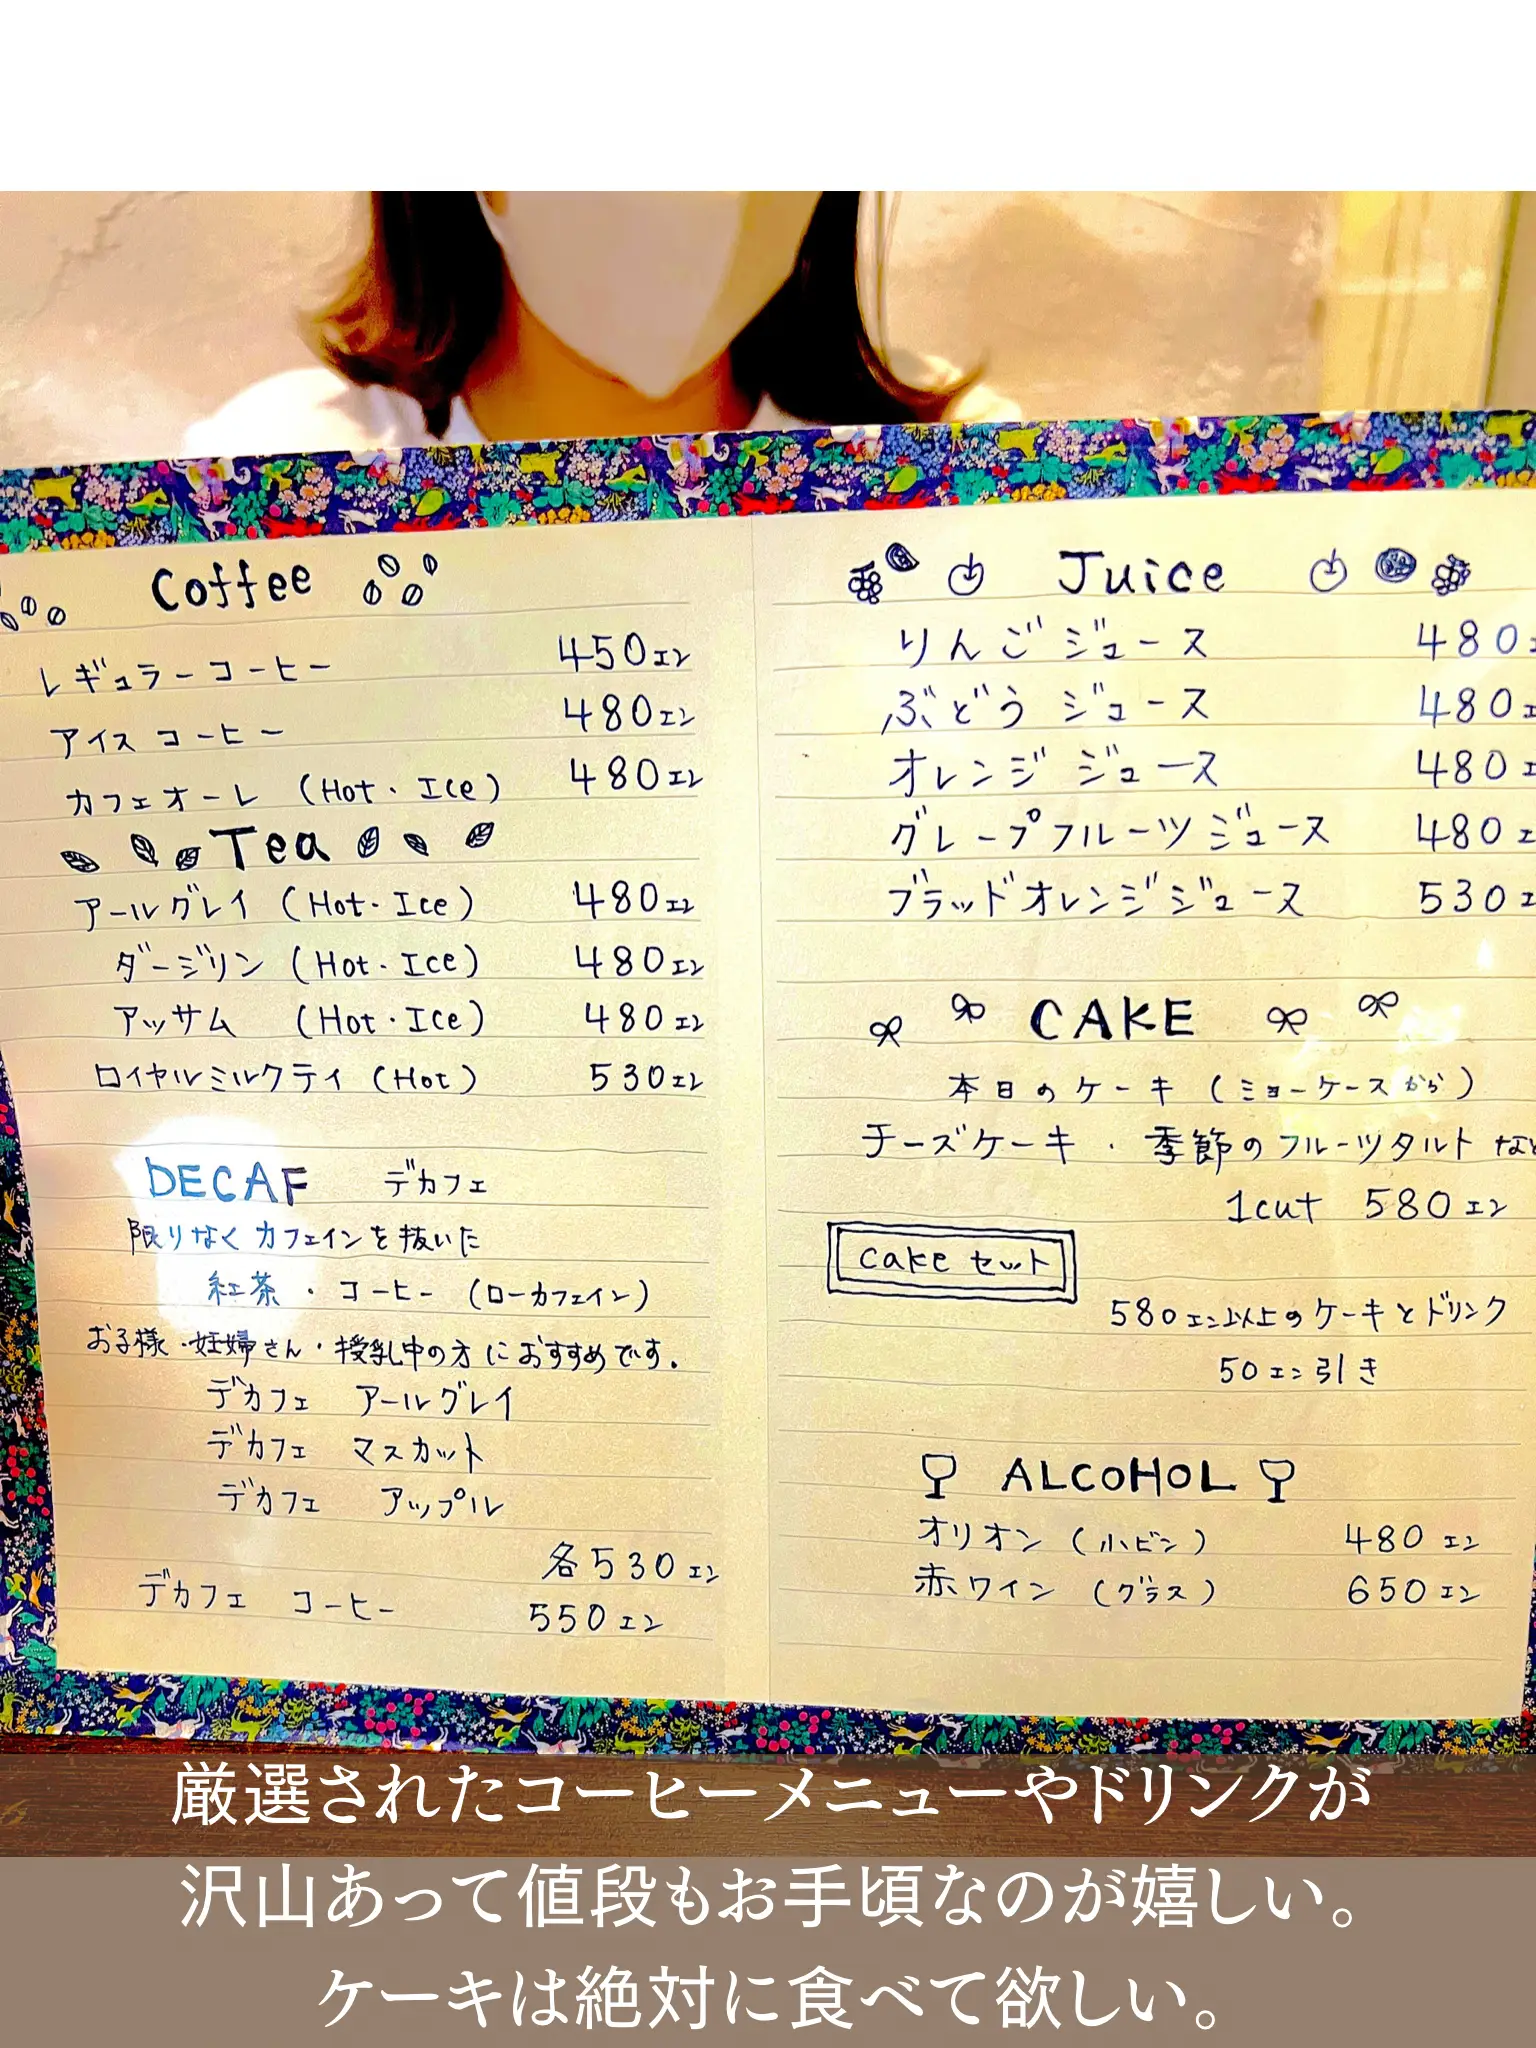 Coffee
レギュラーコーヒー 450エン
アイスコーヒー 480エン
カフェオーレ (Hot・Ice) 480エン
Tea
アールグレイ (Hot・Ice) 480エン
ダージリン (Hot・Ice) 480エン
アッサム (Hot・Ice) 480エン
ロイヤルミルクティ (Hot) 530エン
DECAF デカフェ
限りなくカフェインを抜いた
紅茶・コーヒー (ローカフェイン)
お子様・妊婦さん・授乳中の方におすすめです。
デカフェ アールグレイ
デカフェ マスカット
デカフェ アップル
各530エン
デカフェ コーヒー 550エン
Juice
りんごジュース 480エ
ぶどうジュース 480エ
オレンジジュース 480エ
グレープフルーツジュース 480エ
ブラッドオレンジジュース 530エ
CAKE
本日のケーキ (ショーケースから)
チーズケーキ・季節のフルーツタルトなど
1cut 580エン
cakeセット
580エン以上のケーキとドリンク
50エン引き
ALCOHOL
オリオン (小ビン) 480エン
赤ワイン (グラス) 650エン
厳選されたコーヒーメニューやドリンクが
沢山あって値段もお手頃なのが嬉しい。
ケーキは絶対に食べて欲しい。